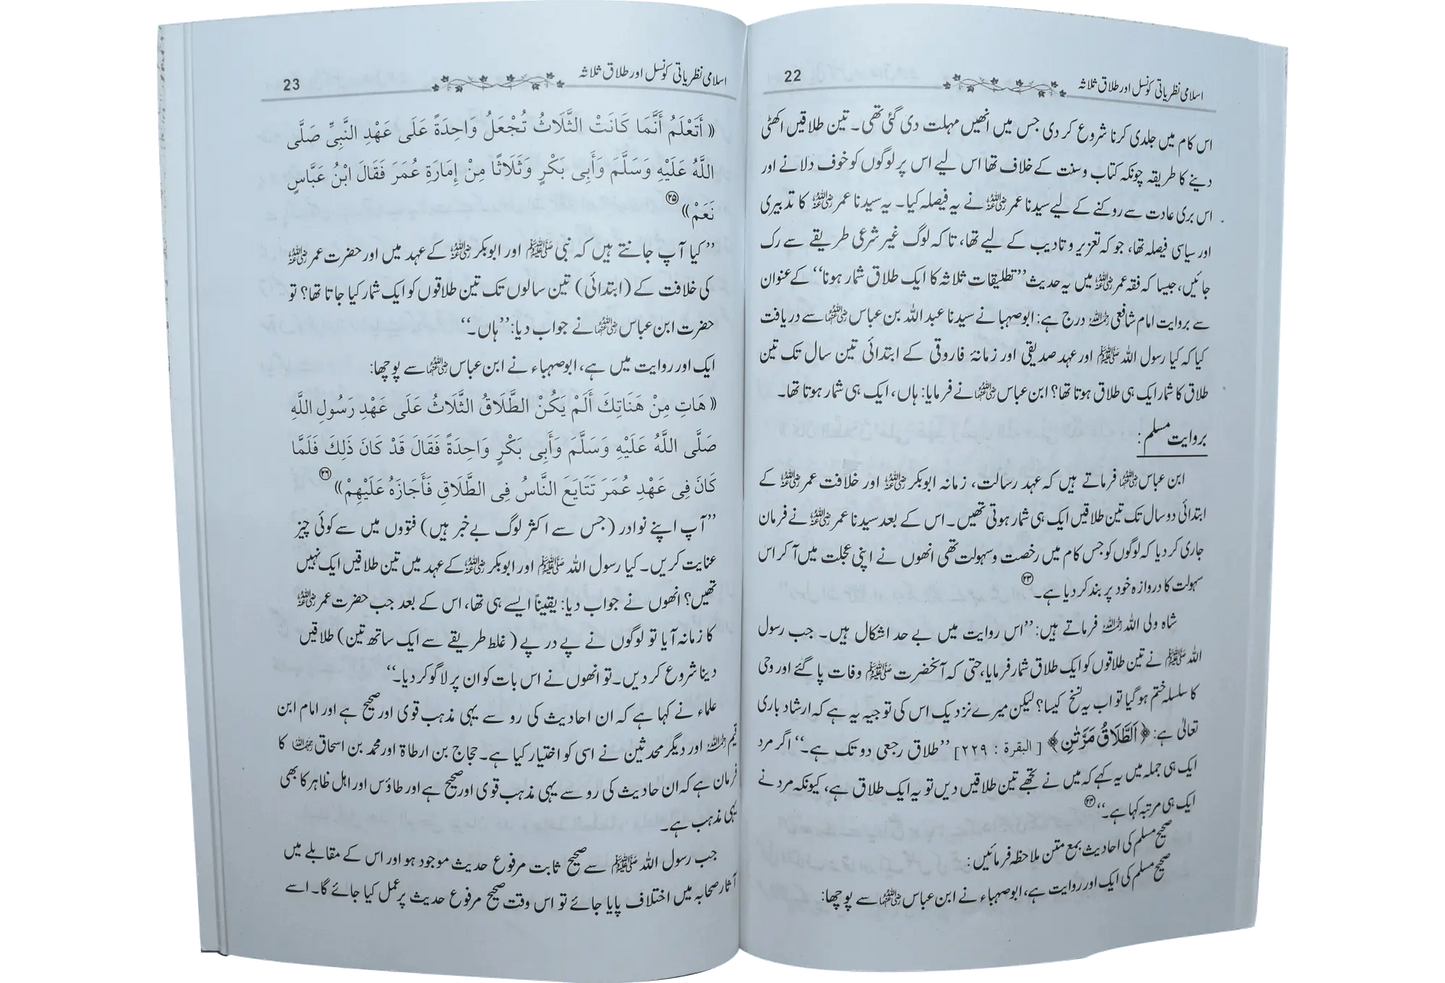 اسلامی نظریاتی کونسل اور طلاق ثلاثہ 22
اس کام میں جلدی کرنا شروع کر دی جس میں انھیں مہلت دی گئی تھی۔ تین طلاقیں اکٹھی
دینے کا طریقہ چونکہ کتاب و سنت کے خلاف تھا اس لیے اس پر لوگوں کو خوف دلانے اور
اس بری عادت سے روکنے کے لیے سیدنا عمر رضی اللہ عنہ نے یہ فیصلہ کیا۔ یہ سیدنا عمر رضی اللہ عنہ کا تدبیری
اور سیاسی فیصلہ تھا، جو کہ تعزیر و تادیب کے لیے تھا، تاکہ لوگ غیر شرعی طریقے سے رک
جائیں، جیسا کہ فقہ عمر رضی اللہ عنہ میں یہ حدیث ’’تطلیقات ثلاثہ کا ایک طلاق شمار ہونا‘‘ کے عنوان
سے بروایت امام شافعی رحمہ اللہ درج ہے: ابوصہبا نے سیدنا عبداللہ بن عباس رضی اللہ عنہما سے دریافت
کیا کہ کیا رسول اللہ ﷺ اور عہد صدیقی اور زمانۂ فاروقی کے ابتدائی تین سال تک تین
طلاق کا شمار ایک ہی طلاق ہوتا تھا؟ ابن عباس رضی اللہ عنہما نے فرمایا: ہاں، ایک ہی شمار ہوتا تھا۔
بروایت مسلم:
ابن عباس رضی اللہ عنہما فرماتے ہیں کہ عہد رسالت، زمانہ ابوبکر رضی اللہ عنہ اور خلافت عمر رضی اللہ عنہ کے
ابتدائی دو سال تک تین طلاقیں ایک ہی شمار ہوتی تھیں۔ اس کے بعد سیدنا عمر رضی اللہ عنہ نے فرمان
جاری کر دیا کہ لوگوں کو جس کام میں رخصت و سہولت تھی انھوں نے اپنی عجلت میں آ کر اس
سہولت کا دروازہ خود پر بند کر دیا ہے۔ ۲۳
شاہ ولی اللہ رحمہ اللہ فرماتے ہیں: ’’اس روایت میں بے حد اشکال ہیں۔ جب رسول
اللہ ﷺ نے تین طلاقوں کو ایک طلاق شمار فرمایا، حتی کہ آنحضرت ﷺ وفات پا گئے اور وحی
کا سلسلہ ختم ہو گیا تو اب یہ نسخ کیسا؟ لیکن میرے نزدیک اس کی توجیہ یہ ہے کہ ارشاد باری
تعالی ہے: ﴿اَلطَّلَاقُ مَرَّتٰنِ﴾ [البقرة : ۲۲۹] ’’طلاق رجعی دو تک ہے۔‘‘ اگر مرد
ایک ہی جملہ میں یہ کہے کہ میں نے تجھے تین طلاقیں دیں تو یہ ایک طلاق ہے، کیونکہ مرد نے
ایک ہی مرتبہ کہا ہے۔‘‘ ۲۴
صحیح مسلم کی احادیث بمع متن ملاحظہ فرمائیں:
صحیح مسلم کی ایک اور روایت ہے، ابوصہباء نے ابن عباس رضی اللہ عنہما سے پوچھا:
اسلامی نظریاتی کونسل اور طلاق ثلاثہ 23
« أَتَعْلَمُ أَنَّمَا كَانَتْ الثَّلَاثُ تُجْعَلُ وَاحِدَةً عَلَى عَهْدِ النَّبِيِّ صَلَّى
اللَّهُ عَلَيْهِ وَسَلَّمَ وَأَبِى بَكْرٍ وَثَلَاثًا مِنْ إِمَارَةِ عُمَرَ فَقَالَ ابْنُ عَبَّاسٍ
نَعَمْ» ۲۵
’’کیا آپ جانتے ہیں کہ نبی ﷺ اور ابوبکر رضی اللہ عنہ کے عہد میں اور حضرت عمر رضی اللہ عنہ
کی خلافت کے (ابتدائی) تین سالوں تک تین طلاقوں کو ایک شمار کیا جاتا تھا؟ تو
حضرت ابن عباس رضی اللہ عنہما نے جواب دیا: ’’ہاں۔‘‘
ایک اور روایت میں ہے، ابوصہباء نے ابن عباس رضی اللہ عنہما سے پوچھا:
« هَاتِ مِنْ هَنَاتِكَ أَلَمْ يَكُنْ الطَّلَاقُ الثَّلَاثُ عَلَى عَهْدِ رَسُولِ اللَّهِ
صَلَّى اللَّهُ عَلَيْهِ وَسَلَّمَ وَأَبِى بَكْرٍ وَاحِدَةً فَقَالَ قَدْ كَانَ ذَلِكَ فَلَمَّا
كَانَ فِى عَهْدِ عُمَرَ تَتَايَعَ النَّاسُ فِى الطَّلَاقِ فَأَجَازَهُ عَلَيْهِمْ» ۲۶
’’آپ اپنے نوادر (جس سے اکثر لوگ بے خبر ہیں) فتووں میں سے کوئی چیز
عنایت کریں۔ کیا رسول اللہ ﷺ اور ابوبکر رضی اللہ عنہ کے عہد میں تین طلاقیں ایک نہیں
تھیں؟ انھوں نے جواب دیا: یقیناً ایسے ہی تھا، اس کے بعد جب حضرت عمر رضی اللہ عنہ
کا زمانہ آیا تو لوگوں نے پے در پے (غلط طریقے سے ایک ساتھ تین) طلاقیں
دینا شروع کر دیں۔ تو انھوں نے اس بات کو ان پر لاگو کر دیا۔‘‘
علماء نے کہا ہے کہ ان احادیث کی رو سے یہی مذہب قوی اور صحیح ہے اور امام ابن
قیم رحمہ اللہ اور دیگر محدثین نے اسی کو اختیار کیا ہے۔ حجاج بن ارطاۃ اور محمد بن اسحاق رحمہما اللہ کا
فرمان ہے کہ ان حادیث کی رو سے یہی مذہب قوی اور صحیح ہے اور طاؤس اور اہل ظاہر کا بھی
یہی مذہب ہے۔
جب رسول اللہ ﷺ سے صحیح ثابت مرفوع حدیث موجود ہو اور اس کے مقابلے میں
آثار صحابہ میں اختلاف پایا جائے تو اس وقت صحیح مرفوع حدیث پر عمل کیا جائے گا۔ اسے